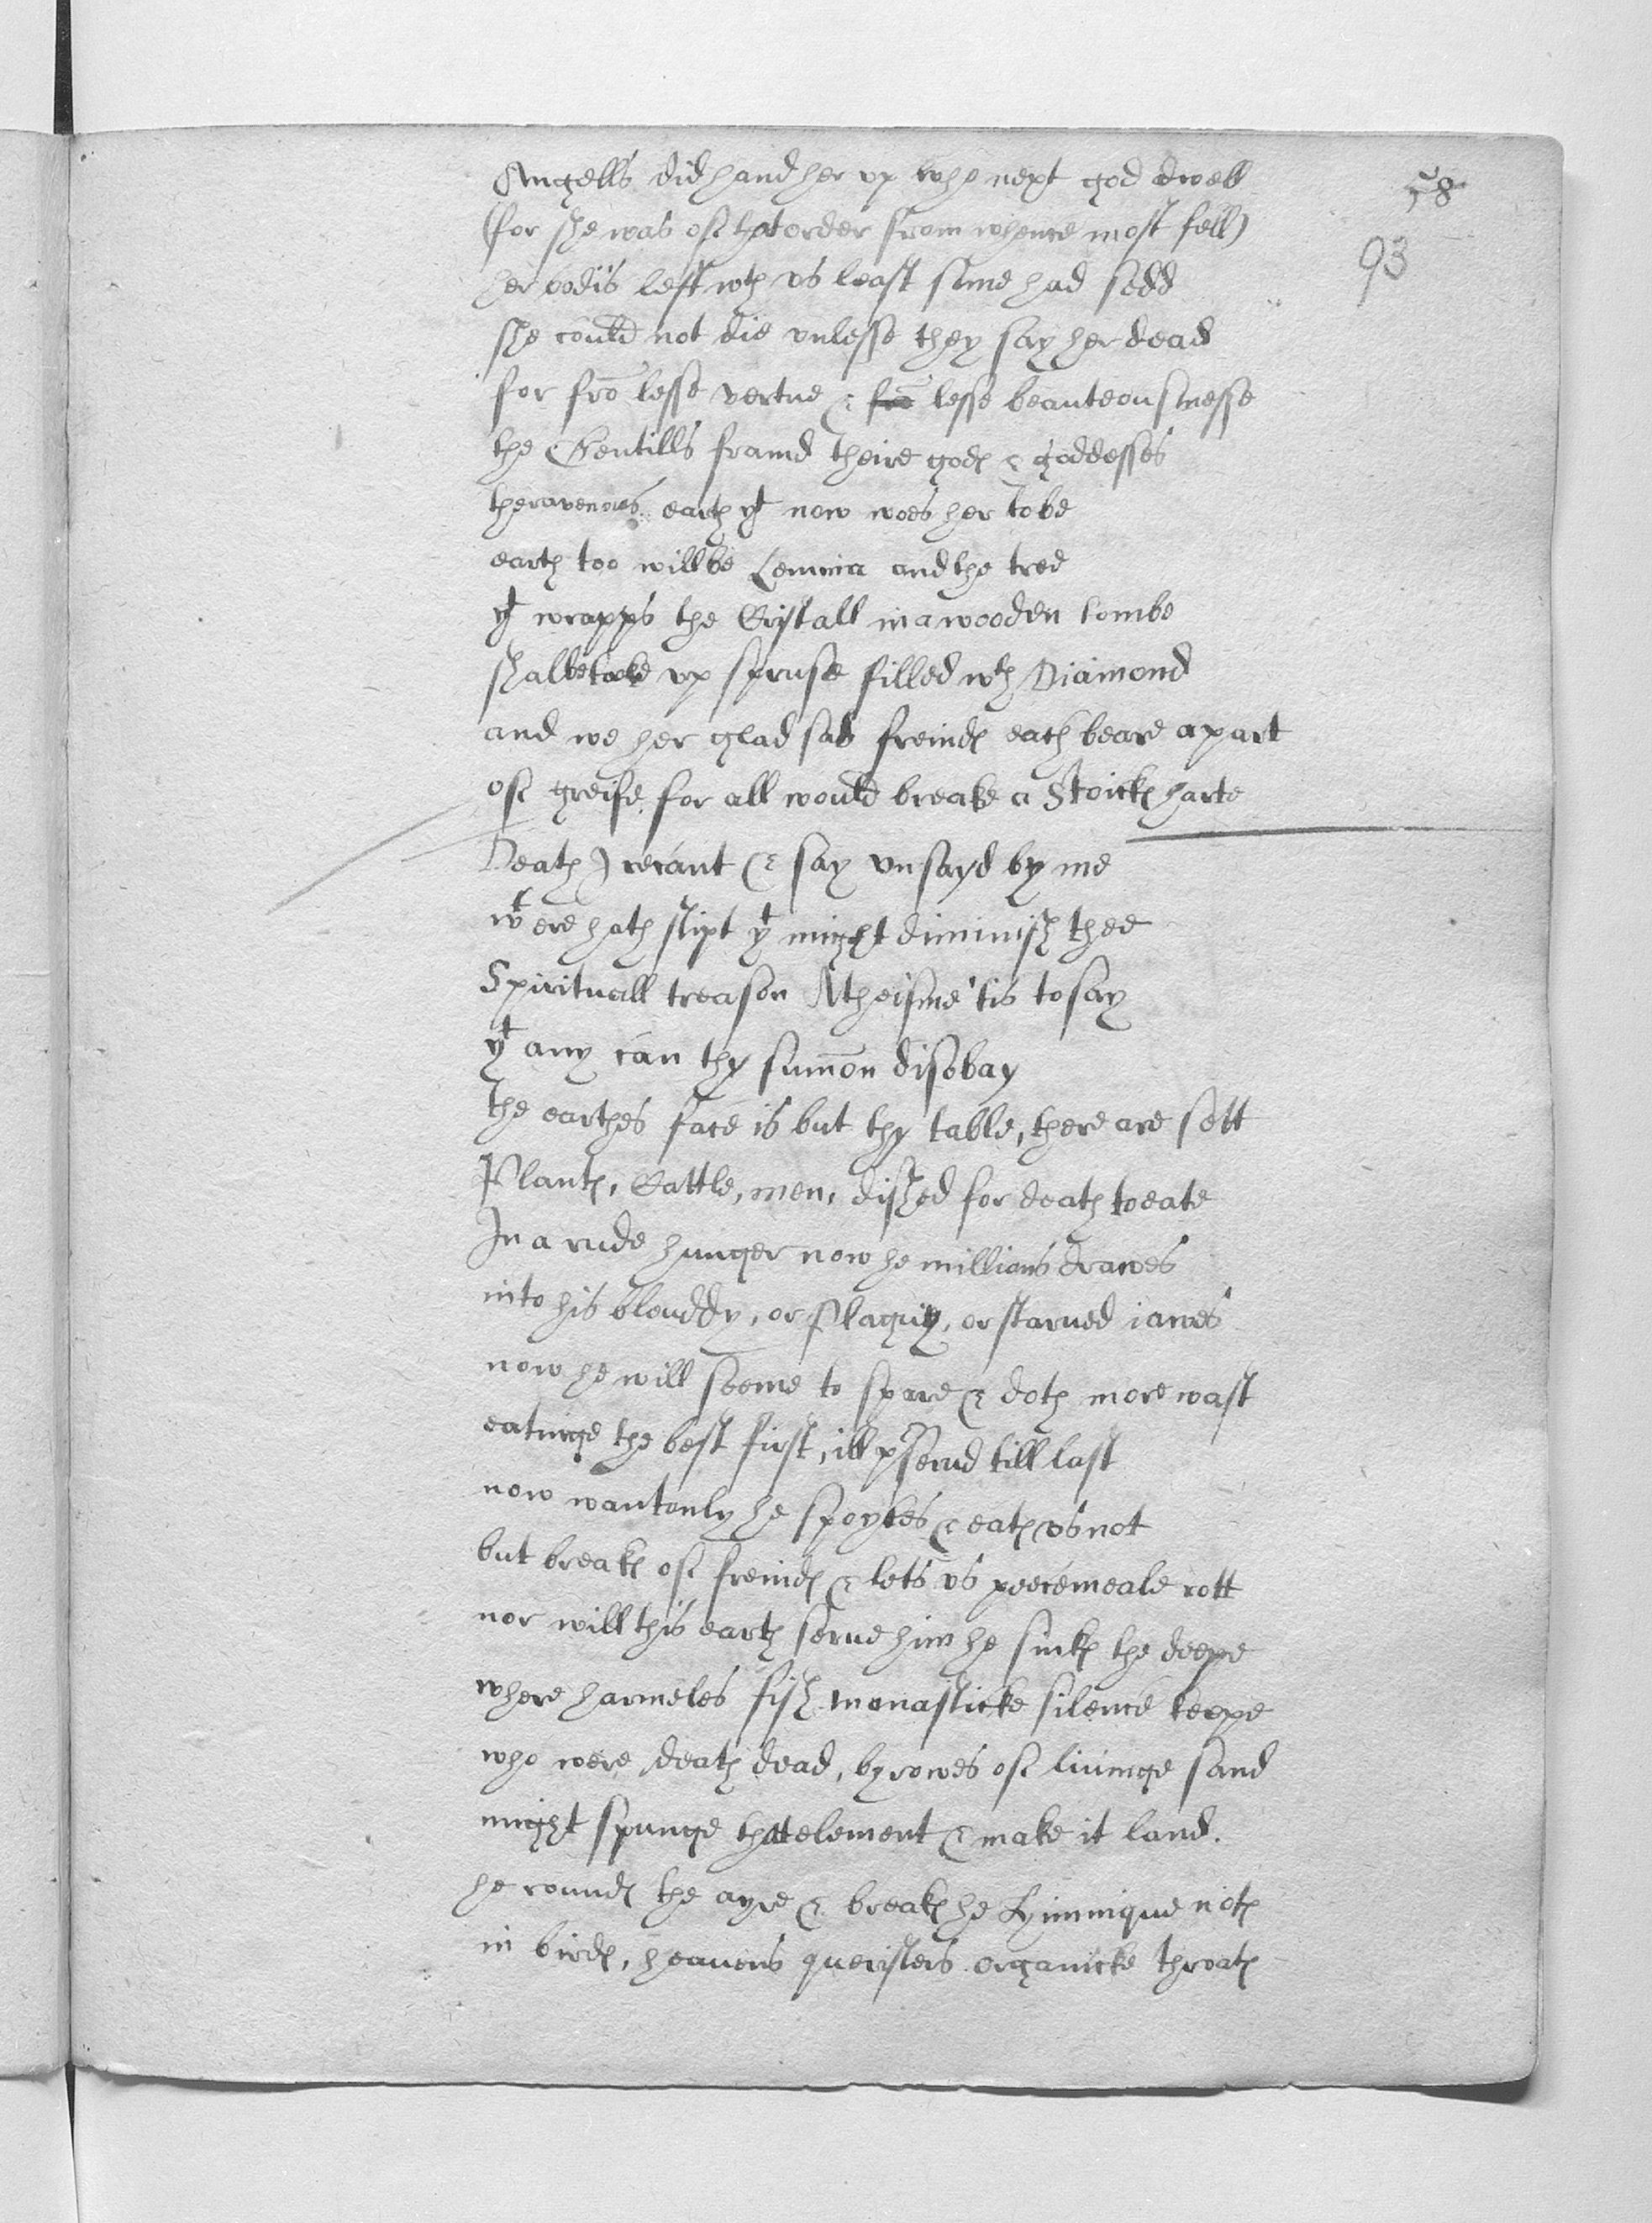 Angells did hand her vp who next god dwell
58
(for she was of that order from whence most fell)
93
her bodis left wth vs least some had sedd
she could not die vnlesse they say her dead
for frō lesse vertue & frō lesse beauteousnesse
the Gentills framd theire gods & goddesses
the ravenous earth yt now woes her to be
earth too will be Lemnia and the tree
yt wrapps the Cristall in a wooden tombe
shalbe tooke vp spruse filled wth Diamond
and we her glad sad freinds each beare a part
of greife for all would breake a Stoicks harte
Death I recant & say vnsayd by me
wt ere hath slipt yt might diminish thee
Spirituall treason Atheisme 'tis to say
yt any can thy sum̄on disobay
the earthes face is but thy table, there are sett
Plants, Cattle, men, dished for death to eate
In a rude hunger now he millions drawes
into his blouddy, or Plaguy, or starued iawes
now he will seeme to spare & doth more wast
eatinge the best first, ill pserud till last
now wantonly he spoyles & eats vs not
but breaks of freinds & lets vs peecemeale rott
nor will this earth serue him he sinks the deepe
where harmeles fish monasticke silence keepe
who were death dead, by rowes of liuinge sand
might spunge that element & make it land.
he rounds the ayre & breaks he Hymnique nots
in birds, heauens queristers organicke throats